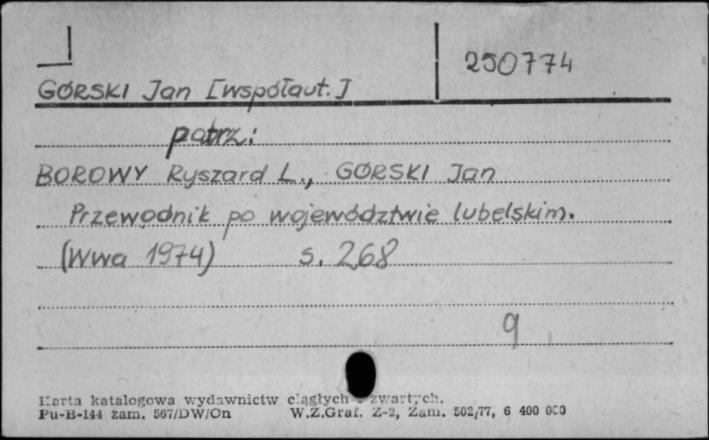 250774
GÓRSKI Jan [współaut.]
patrz:
BOROWY Ryszard L., GÓRSKI Jan
Przewodnik po województwie lubelskim.
(Wwa 1974) s. 268
9
Karta katalogowa wydawnictw ciągłych i zwartych.
Pu-B-144 zam. 567/DW/On W.Z.Graf. Z-2, Zam. 502/77, 6 400 000